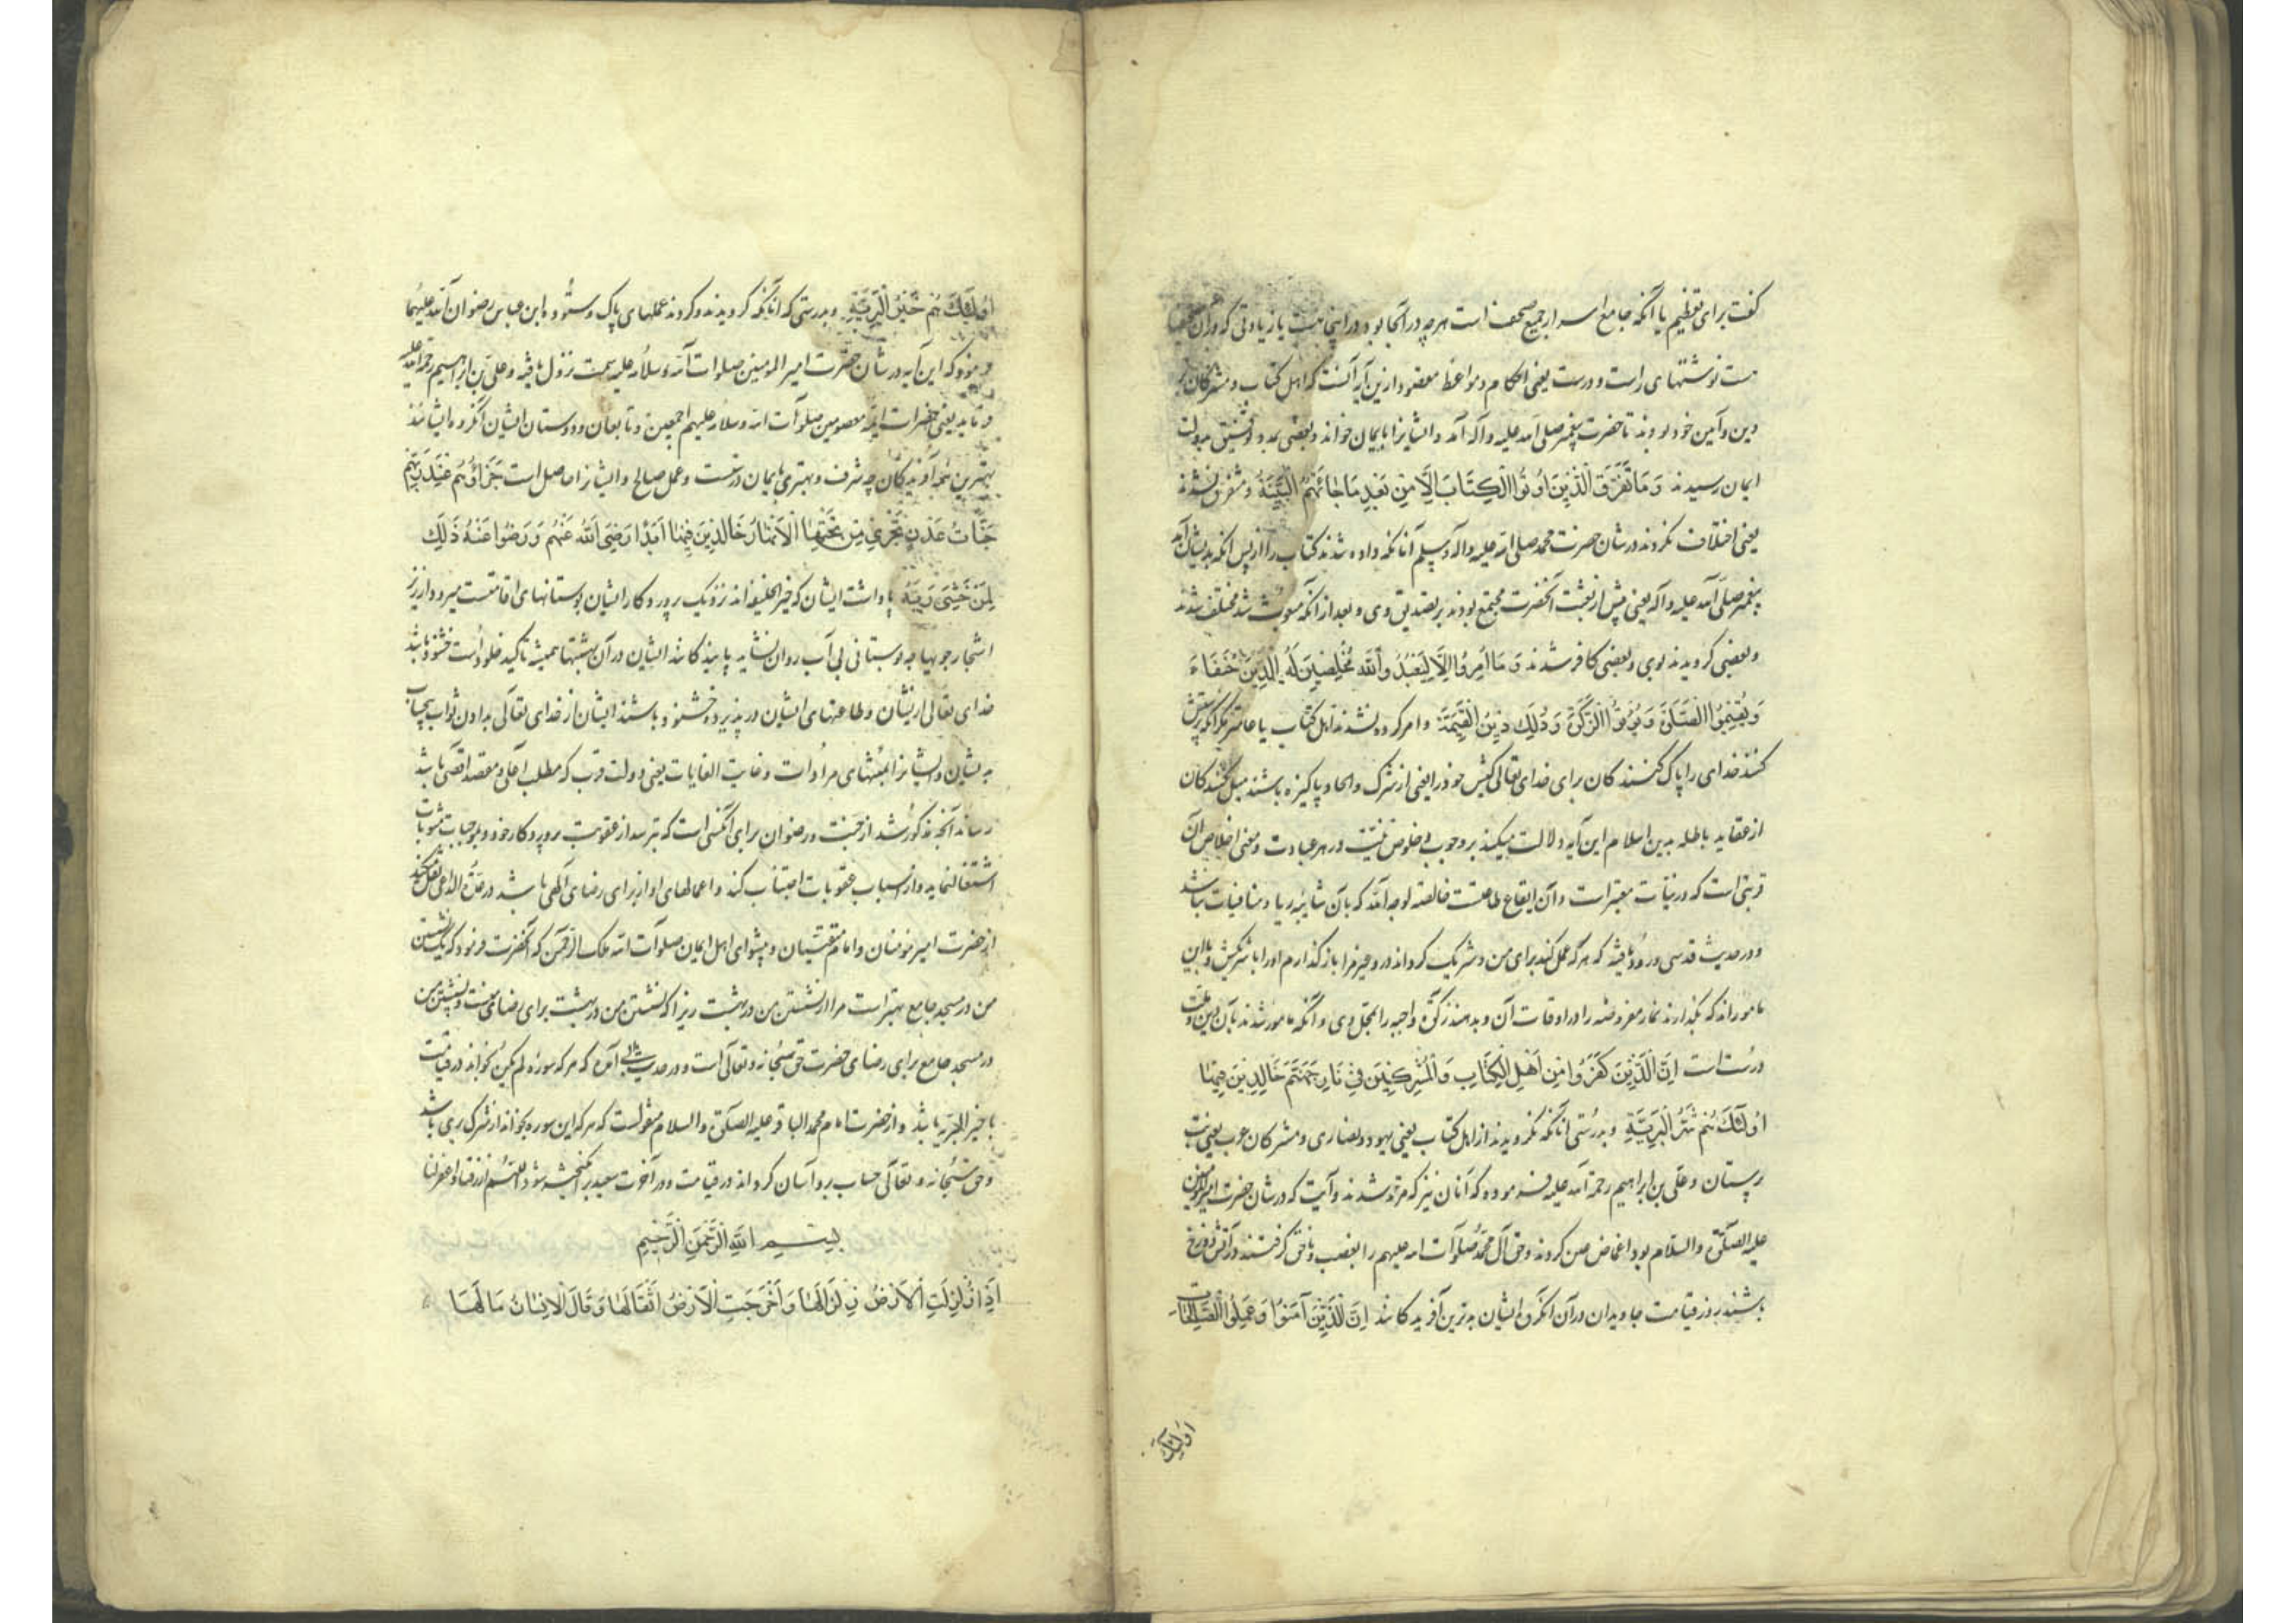 کفت برای تعظیم یا آنکه جامع اسرار جمیع صحف است هرچه در آنجا بود در اینجا هست با زیادتی که در آن
هست نوشتهای راست و درست یعنی احکام و مواعظ مقصود ازین آیه آنست که اهل کتاب و مشرکان
دین و آیین خود بودند تا حضرت پیغمبر صلی الله علیه و آله آمد و ایشانرا بایمان خواند و بعضی بمدد توفیق بدولت
ایمان رسیدند وَمَا تَفَرَّقَ الَّذِیْنَ اُوتُوا الْکِتَابَ اِلَّا مِنْ بَعْدِ مَا جَائَتْهُمُ الْبَیِّنَةُ و متفرق نشدند
یعنی اختلاف نکردند در شان حضرت محمد صلی الله علیه و آله و سلم آنانکه داده شدند کتاب را از پس آنکه بدیشان آمد
پیغمبر صلی الله علیه و آله یعنی پیش از بعثت آنحضرت مجتمع بودند بر تصدیق وی و بعد از آنکه مبعوث شد مختلف شدند
و بعضی کرویدند بوی و بعضی کافر شدند وَ مَا اُمِرُوا اِلَّا لِیَعْبُدُوا اللهَ مُخْلِصِیْنَ لَهُ الدِّیْنَ حُنَفَاءَ
وَ یُقِیْمُوا الصَّلٰوةَ وَ یُؤْتُوا الزَّکٰوةَ وَ ذٰلِکَ دِیْنُ الْقَیِّمَةِ و امر کرده نشدند اهل کتاب یا عامتر مکر آنکه پرستش
کنند خدای را پاک کنندکان برای خدای تعالی کیش خود را یعنی از شرک و الحاد پاکیزه باشند میل کنندکان
از عقاید باطله بدین اسلام این آیه دلالت میکند بر وجوب خلوص نیت در هر عبادت و معنی اخلاص آن
قربتی است که در نیات معتبر است و آن ایقاع طاعتست خالصة لوجه الله که بآن شائبه ریا و منافیات نباشد
و در حدیث قدسی ورود یافته که هر که عمل کند برای من و شریک کرداند در و غیر مرا باز کذارم او را با شریکش
مامورند که بکذارند نماز مفروضه را در اوقات آن و بدهند زکوة واجبه را بمحل وی و آنکه مامور شدند بآن دین و ملت
درست است اِنَّ الَّذِیْنَ کَفَرُوا مِنْ اَهْلِ الْکِتَابِ وَ الْمُشْرِکِیْنَ فِیْ نَارِ جَهَنَّمَ خَالِدِیْنَ فِیْهَا
اُولٰئِکَ هُمْ شَرُّ الْبَرِیَّةِ و بدرستی آنانکه نکرویدند از اهل کتاب یعنی یهود و نصاری و مشرکان عرب یعنی بت
پرستان و علی بن ابراهیم رحمة الله علیه فرموده که آنان نیز که مرتد شدند و آیت که در شان حضرت امیر المؤمنین
علیه الصلوة و السلام بود اغماض کردند و حق آل محمد صلوات الله علیهم را بغصب و ناحق کرفتند در آتش دوزخ
باشند روز قیامت جاویدان در آن آنکروه ایشان بدترین آفریدکانند اِنَّ الَّذِیْنَ آمَنُوا وَ عَمِلُوا الصَّالِحَاتِ
اولئک
اُولٰئِکَ هُمْ خَیْرُ الْبَرِیَّةِ و بدرستی که آنانکه کرویدند و کردند عملهای پاک و ستوده ابن عباس رضوان الله علیهما
فرموده که این آیه در شان حضرت امیر المومنین صلوات الله و سلامه علیه سمت نزول یافته و علی بن ابراهیم رحمه الله علیه
فرماید یعنی حضرات ائمه معصومین صلوات الله و سلامه علیهم اجمعین و تابعان و دوستان ایشان آنکروه ایشانند
بهترین همه آفریدکان چه شرف و بهتری بایمان درست و عمل صالح و ایشانرا حاصل است جَزَاؤُهُمْ عِنْدَ رَبِّهِمْ
جَنَّاتُ عَدْنٍ تَجْرِیْ مِنْ تَحْتِهَا الْاَنْهَارُ خَالِدِیْنَ فِیْهَا اَبَدًا رَضِیَ اللهُ عَنْهُمْ وَ رَضُوا عَنْهُ ذٰلِکَ
لِمَنْ خَشِیَ رَبَّهُ پاداشت ایشان که خیر الخلیقه اند نزدیک پروردکار ایشان بوستانهای اقامتست میرود از زیر
اشجار جویها چه بوستانی بی آب روان نشاید پایندکانند ایشان در آن بهشتها همیشه تاکید خلود است خشنود باشد
خدای تعالی از یشان و طاعتهای ایشان در پذیرد و خشنود باشند ایشان از خدای تعالی بدادن ثواب بیحساب
بدیشان و ایشانرا بمنتهای مرادات و غایت الغایات یعنی دولت قرب که مطلب اعلی و مقصد اقصی باشد
رساند آنچه مذکور شد از جنت و رضوان برای آنکسی است که بترسد از عقوبت پروردکار خود و بموجبات مثوبات
اشتغال نماید و از اسباب عقوبات اجتناب کند و اعمالهای او از برای رضای الهی باشد در عدة الداعی نقل میکند
از حضرت امیر مؤمنان و امام متقیان و پیشوای اهل ایمان صلوات الله ملک الرحمن که آنحضرت فرمود که یک نشستن
من در مسجد جامع بهتر است مرا از نشستن من در بهشت زیرا که نشستن من در بهشت برای رضای منست و نشستن من
در مسجد جامع برای رضای حضرت حق سبحانه و تعالی است و در حدیث آمده که هر که سوره لم یکن بخواند در قیامت
با خیر البریه باشد و از حضرت امام محمد الباقر علیه الصلوة و السلام منقولست که هر که این سوره بخواند از شرک بری باشد
و حق سبحانه و تعالی حساب برو آسان کرداند در قیامت و در آخرت سعید برانکیخته شود اللهم ارزقنا و اغفر لنا
بِسْمِ اللهِ الرَّحْمٰنِ الرَّحِیْمِ
اِذَا زُلْزِلَتِ الْاَرْضُ زِلْزَالَهَا وَ اَخْرَجَتِ الْاَرْضُ اَثْقَالَهَا وَ قَالَ الْاِنْسَانُ مَا لَهَا